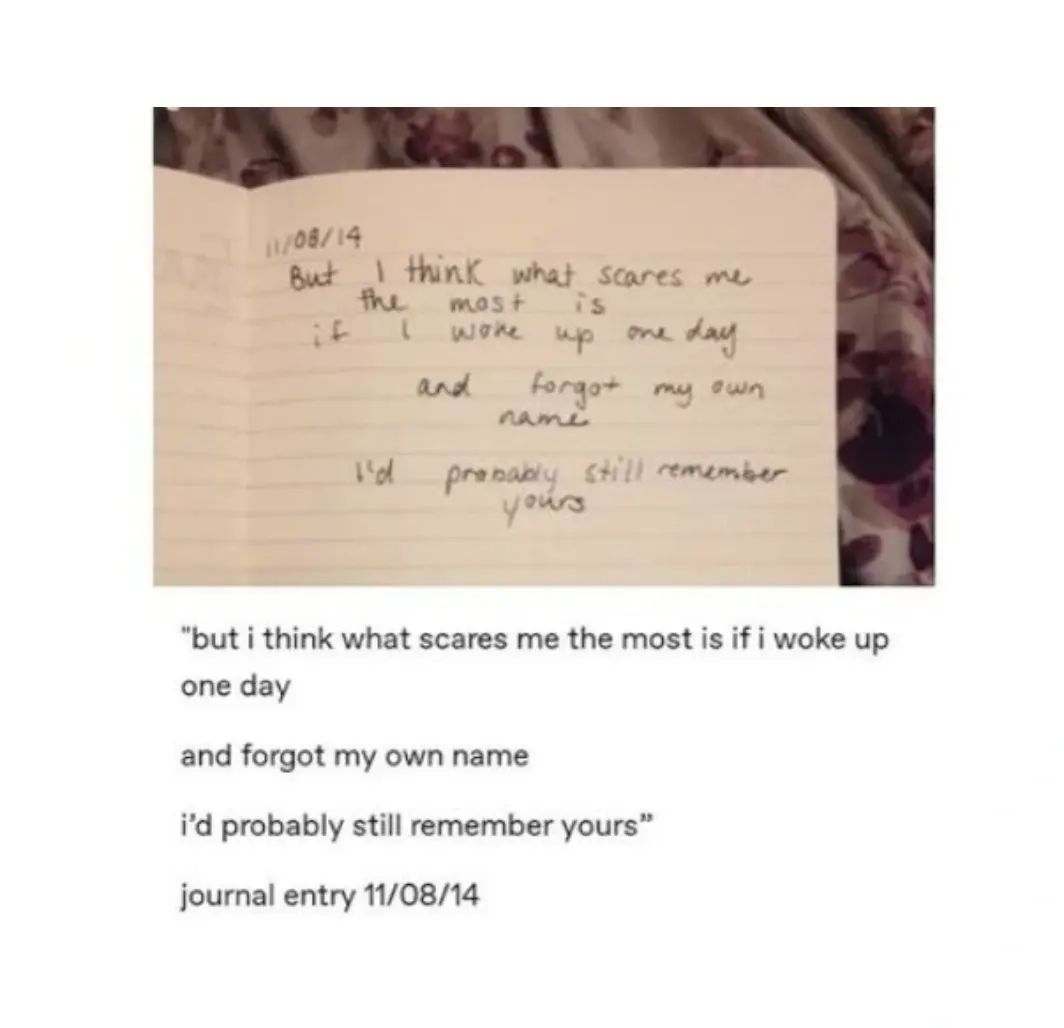 11/08/14
But I think what scares me
the most is
if I woke up one day
and forgot my own
name
I'd probably still remember
yours
"but i think what scares me the most is if i woke up
one day
and forgot my own name
i'd probably still remember yours”
journal entry 11/08/14